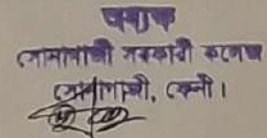 অধ্যক্ষ
সোনাগাজী সরকারী কলেজ
সোনাগাজী, ফেনী।